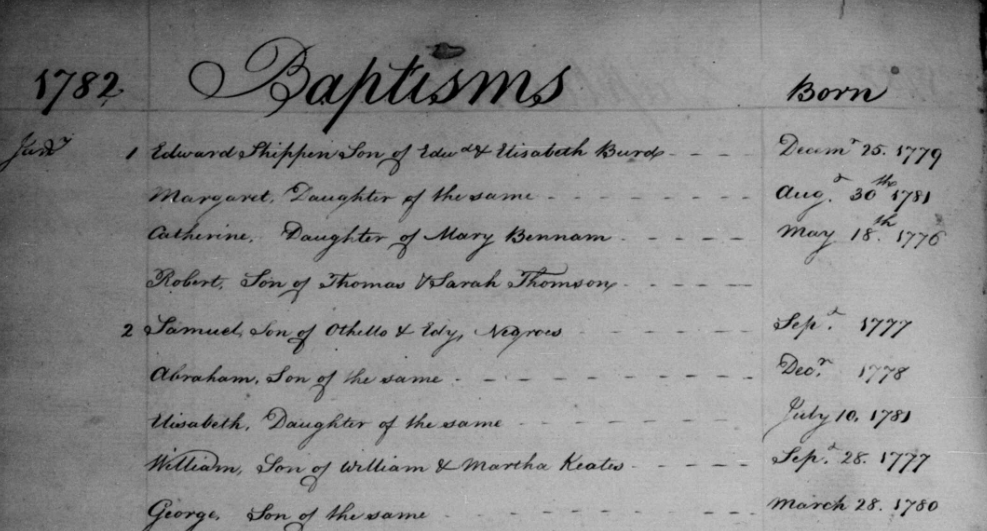 1782 Baptisms Born
Jany 1 Edward Shippen Son of Edwd & Elisabeth Burd Decemr 25. 1779
Margaret, Daughter of the same Augt 30th 1781
Catherine, Daughter of Mary Bennam May 18th 1776
Robert, Son of Thomas & Sarah Thomson
2 Samuel, Son of Othello & Edy, Negroes Sepr 1777
Abraham, Son of the same Decr 1778
Elisabeth, Daughter of the same July 10. 1781
William, Son of William & Martha Keates Sepr 28. 1777
George, Son of the same March 28. 1780